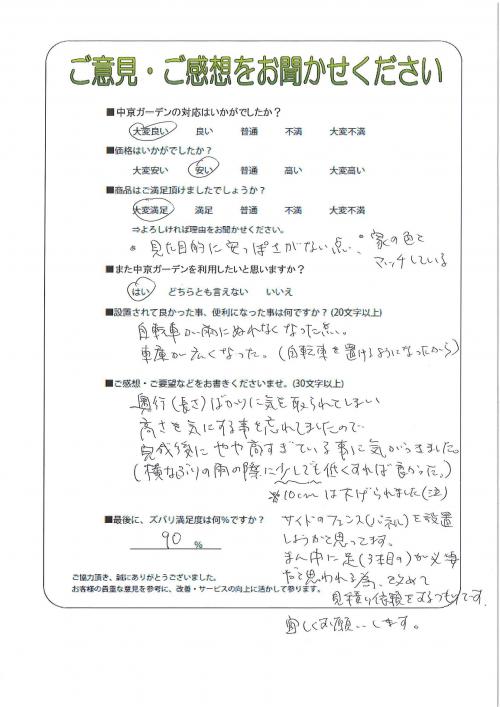 ご意見・ご感想をお聞かせください
■中京ガーデンの対応はいかがでしたか？
大変良い 良い 普通 不満 大変不満
■価格はいかがでしたか？
大変安い 安い 普通 高い 大変高い
■商品はご満足頂けましたでしょうか？
大変満足 満足 普通 不満 大変不満
⇒よろしければ理由をお聞かせください。
* 見た目的に安っぽさがない点、 * 家の色と
マッチしている
■また中京ガーデンを利用したいと思いますか？
はい どちらとも言えない いいえ
■設置されて良かった事、便利になった事は何ですか？(20文字以上)
自転車が雨にぬれなくなった点。
車庫が広くなった。(自転車を置けるようになったから)
■ご感想・ご要望などをお書きくださいませ。(30文字以上)
奥行(長さ)ばかりに気を取られてしまい
高さを気にする事を忘れてましたので
完成後にやや高すぎている事に気がつきました。
(横なぶりの雨の際に少しでも低くすれば良かった。)
※10cmは下げられました(注)
■最後に、ズバリ満足度は何%ですか？
90 %
サイドのフェンス(パネル)を設置
しようかと思ってます。
まん中に足(3本目の)が必要
だと思われる為、改めて
見積り依頼をするつもりです。
宜しくお願いします。
ご協力頂き、誠にありがとうございました。
お客様の貴重な意見を参考に、改善・サービスの向上に活かして参ります。